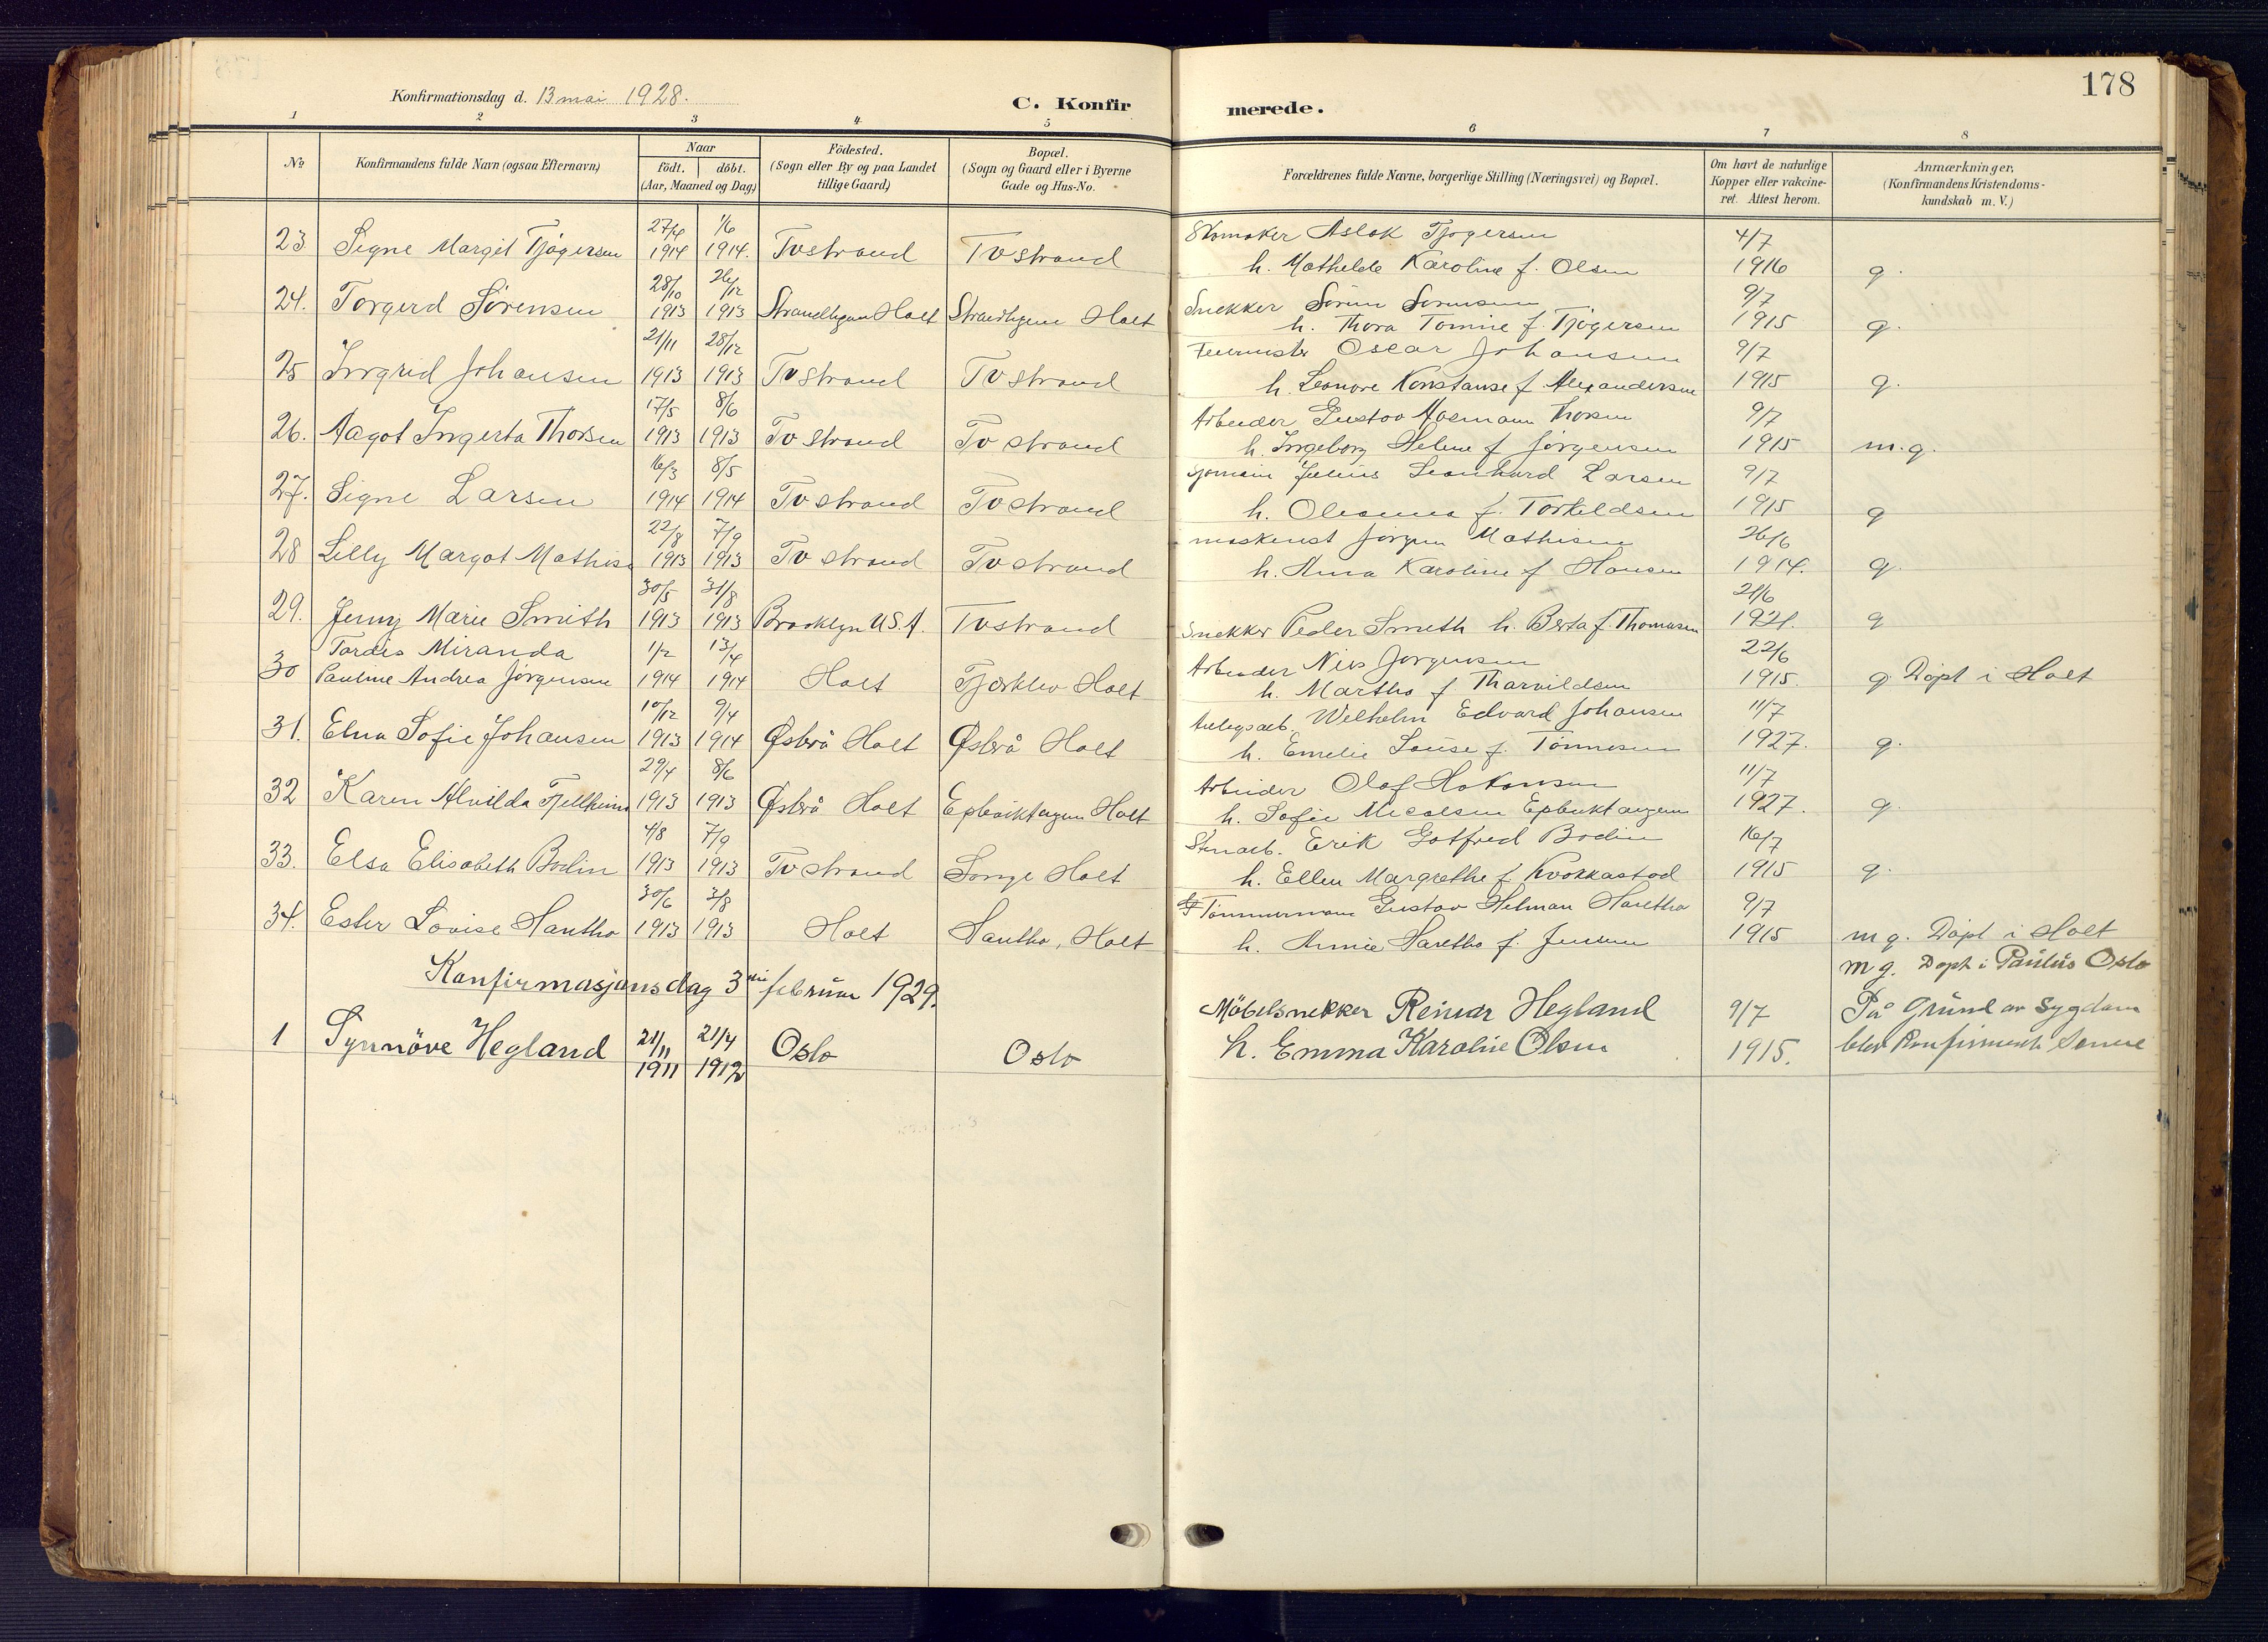 178
Konfirmationsdag d. 13 mai 1928.
C. Konfirmerede.
1 2 3 4 5 6 7 8
No Konfirmandens fulde Navn (ogsaa Efternavn) Naar født. døbt. (Aar, Maaned og Dag) Fødested. (Sogn eller By og paa Landet tillige Gaard) Bopæl. (Sogn og Gaard eller i Byerne Gade og Hus-No. Forældrenes fulde Navne, borgerlige Stilling (Næringsvei) og Bopæl. Om havt de naturlige Kopper eller vakcineret. Attest herom. Anmærkninger. (Konfirmandens Kristendomskundskab m. V.)
23 Signe Margit Tjøgersen 27/4 1914 1/6 1914. Tvestrand Tvestrand Skomaker Aslak Tjøgersen 4/7
h. Mathelde Karoline f. Olsen 1916 g.
24. Torgerd Sørensen 28/10 1913 26/12 1913 Holt Holt Snekker Søren Sørensen 9/7
h. Thora Tomine f. Tjøgersen 1915 g.
25 Ingrid Johansen 21/11 1913 28/12 1913 Tvestrand Tvestrand Oscar Johansen 9/7
h. Leonore Konstanse f. Alexandersen 1915 g.
26. Aagot Ingerta Thorsen 17/5 1913 8/6 1913 Tvestrand Tvestrand Arbeider Gustav Thorsen 9/7
h. Ingeborg Helene f Jørgensen 1915 m.g.
27. Signe Larsen 16/3 1914 8/5 1914 Tvestrand Tvestrand Julius Leonhard Larsen 9/7
h. Oleanna f. Torkeldsen 1915 g
28 Lilly Margot Mathis 22/8 1913 7/9 1913 Tvestrand Tvestrand maskinist Jørgen Mathisen 26/6
h. Anna Karoline f Hansen 1914. g.
29. Jenny Marie Smith 30/5 1913 31/8 1913 Brooklyn U.S.A. Tvestrand Snekker Peder Smith h. Berta f. Thomasen 21/6 1921. g
30 Tordis Miranda Pauline Andrea Jørgensen 1/2 1914 13/4 1914 Holt Holt Arbeider Nils Jørgensen 22/6
h. Martha f Tharvildsen 1915. g Døpt i Holt
31. Elna Sofie Johansen 10/12 1913 9/4 1914 Østerå Holt Østerå Holt Anlegsarb. Welhelm Edvard Johansen 11/7
h. Emelie Louise f. Tønnesen 1927. g.
32 Karen Alvilda Fjellheim 29/4 1913 8/6 1913 Østerå Holt Holt Arbeider Olaf Hakonsen 11/7
h. Sofie 1927. g.
33. Elsa Elisabeth Bodin 4/8 1913 7/9 1913 Tvestrand Songe Holt Stenarb. Erik Gotfred Bodin 16/7
h. Ellen Margrethe f 1915 g.
34. Ester Lovise Hantho 30/6 1913 3/8 1913 Holt Hantho, Holt Tømmermann Gustav Helman 9/7
h. Annie f. Jensen 1915 m g. Døpt i Holt
Konfirmasjonsdag 3 februar 1929.
m g. Døpt i Paulus Oslo
1 Synnöve Hegland 21/11 1911 21/4 1912 Oslo Oslo Möbelsnekker Reinar Hegland 9/7 På Grund av Sygdom
h. Emma Karoline Olsen 1915. blev Konfirmert